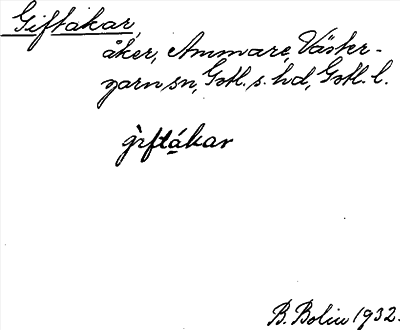 Giftåkar,
åker, Ammare, Väster-
garn sn, Gotl. s. hd, Gotl. l.
giftåkar
B. Bolin 1932.